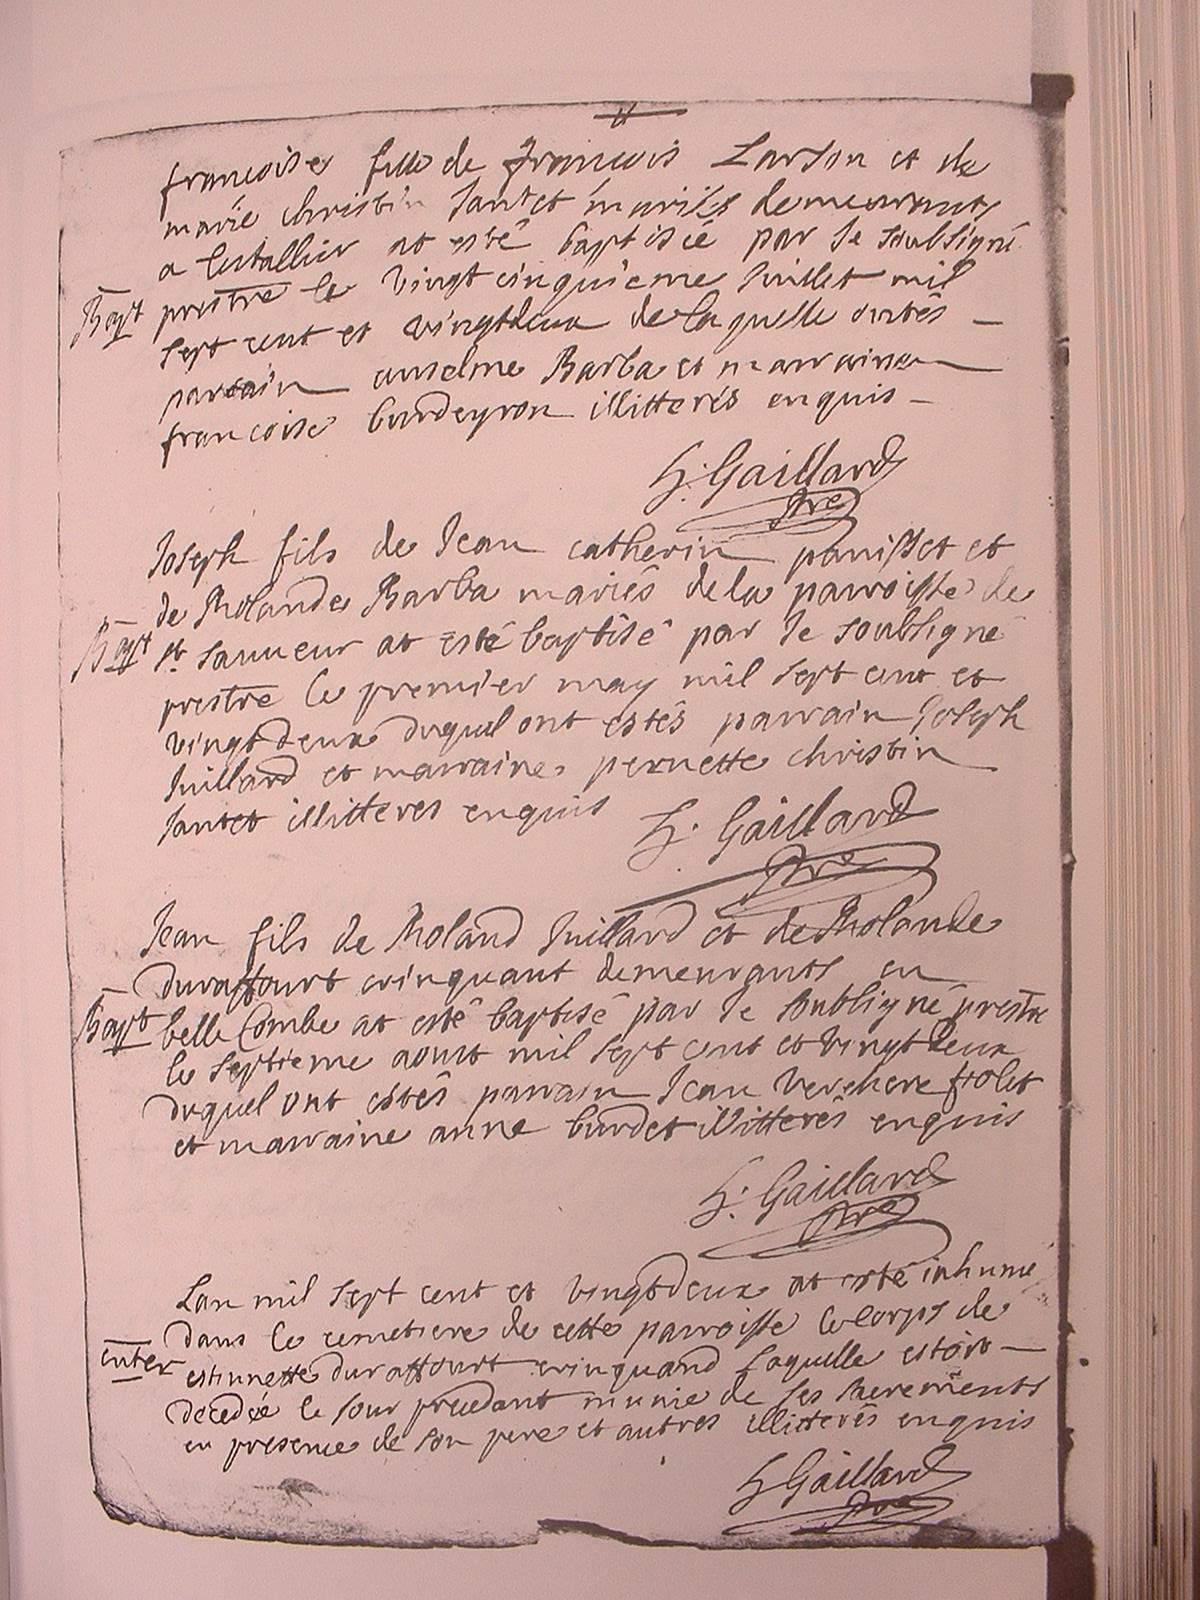 francoise fille de francois Larson et de
marie christin Jantet mariés demeurants
a lestallier at esté baptisée par Je soubsigné
Bapt prestre le vingt cinquieme Juillet mil
sept cent et vingtdeux de laquelle ontés
parrain anselme Barba et marraine
francoise burdeyron illitterés enquis
Gaillard
ptre
Joseph fils de Jean catherin panisset et
de Rolande Barba mariés de la parroisse de
Bapt st sauueur at esté baptisé par Je soubsigné
prestre le premier may mil sept cent et
vingtdeux duquel ont estés parrain Joseph
Juillard et marraine pernette christin
Jantet illitteres enquis
Gaillard
ptre
Jean fils de Roland Juillard et de Rolande
duraffourt crinquant demeurants en
Bapt belle Combe at esté baptisé par Je soubsigné prestre
le septieme aoust mil sept cent et vingtdeux
duquel ont estés parrain Jean verchere frolet
et marraine anne burdet illitterés enquis
Gaillard
ptre
Lan mil sept cent et vingtdeux at esté inhumé
dans le cemetiere de cette parroisse le corps de
enter estiennette duraffourt crinquand laquelle estoit
decedée le Jour precedant munie de ses sacrements
en presence de son pere et autres illitterés enquis
Gaillard
ptre